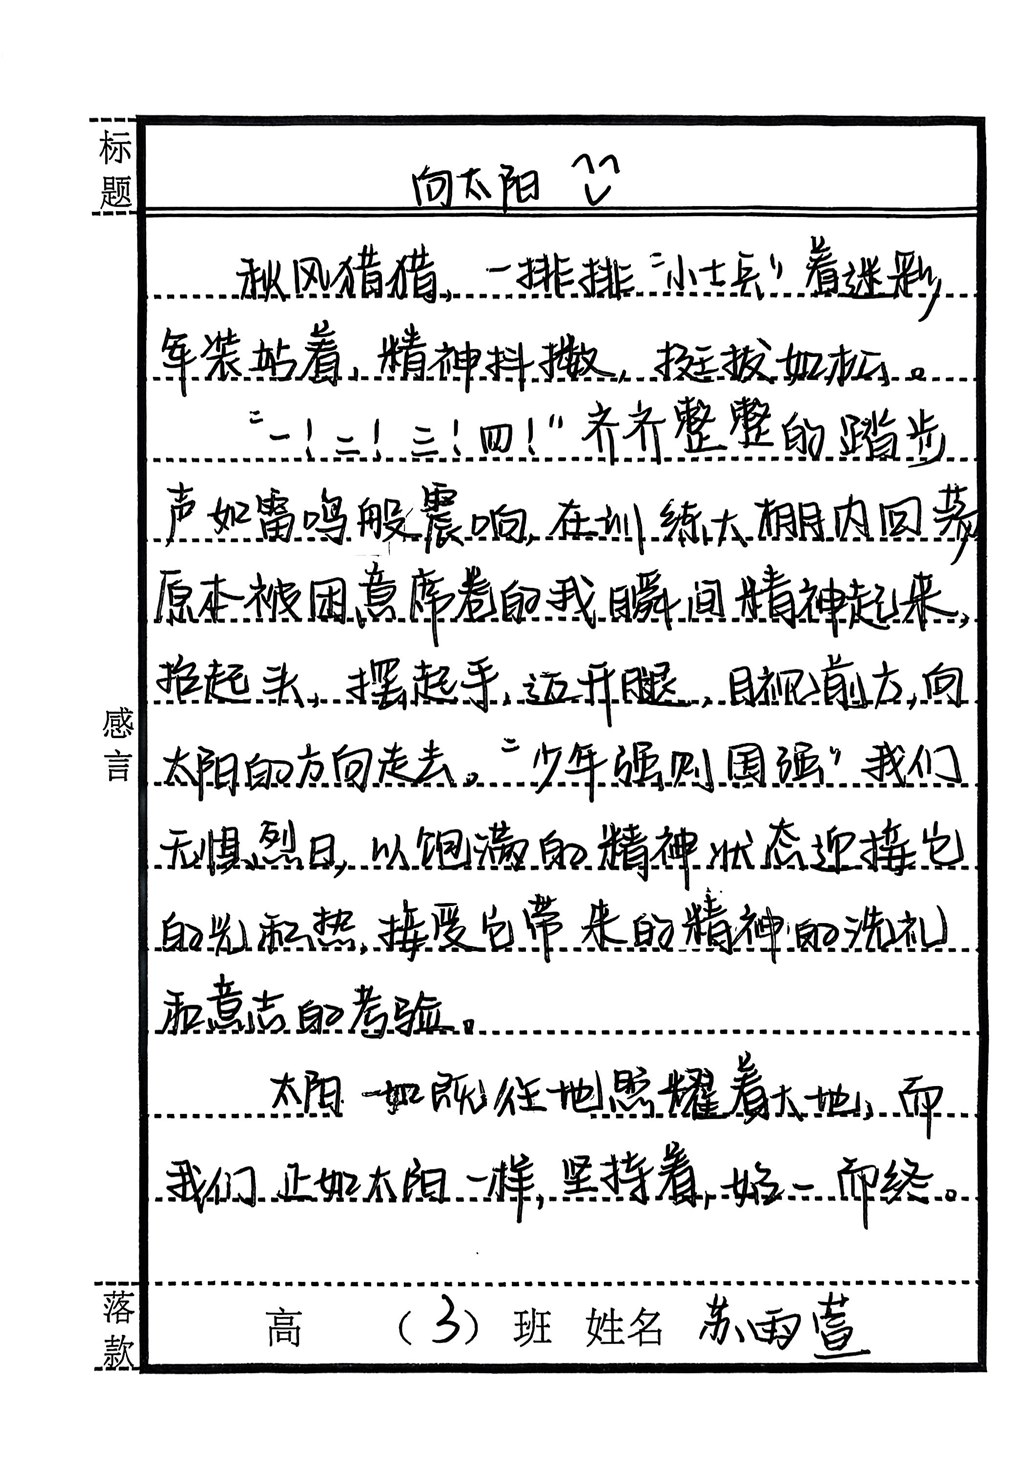 标题
向太阳
秋风猎猎，一排排“小士兵”着迷彩
军装站着，精神抖擞，挺拔如松。
“一！二！三！四！”齐齐整整的踏步
声如雷鸣般震响，在训练大棚内回荡
原本被困意席卷的我瞬间精神起来，
抬起头，摆起手，迈开腿，目视前方，向
太阳的方向走去。“少年强则国强”我们
无惧烈日，以饱满的精神状态迎接它
的光和热，接受它带来的精神的洗礼
和意志的考验。
感言
太阳一如既往地照耀着大地，而
我们正如太阳一样，坚持着，始一而终。
落款
高 （3）班 姓名 苏雨萱